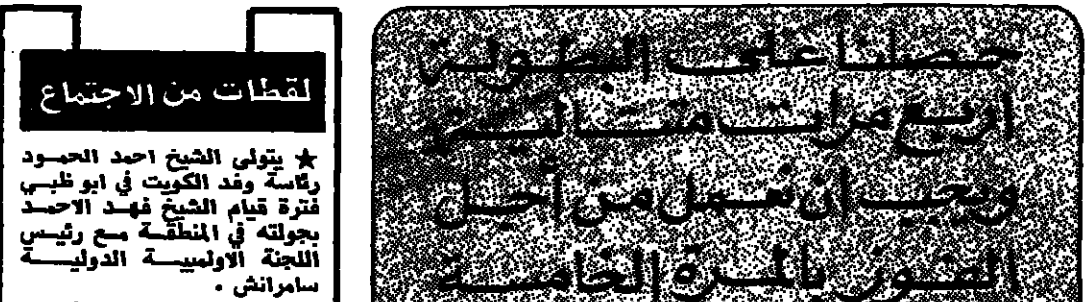 حصلنا على البطولة
اربع مرات متتالية
ويجب ان نعمل من أجل
الفوز بالمرة الخامسة
لقطات من الاجتماع
★ يتولى الشيخ احمد الحمود
رئاسة وفد الكويت في ابو ظبي
فترة قيام الشيخ فهد الاحمد
بجولته في المنطقة مع رئيس
اللجنة الاولمبية الدولية
سامرانش .